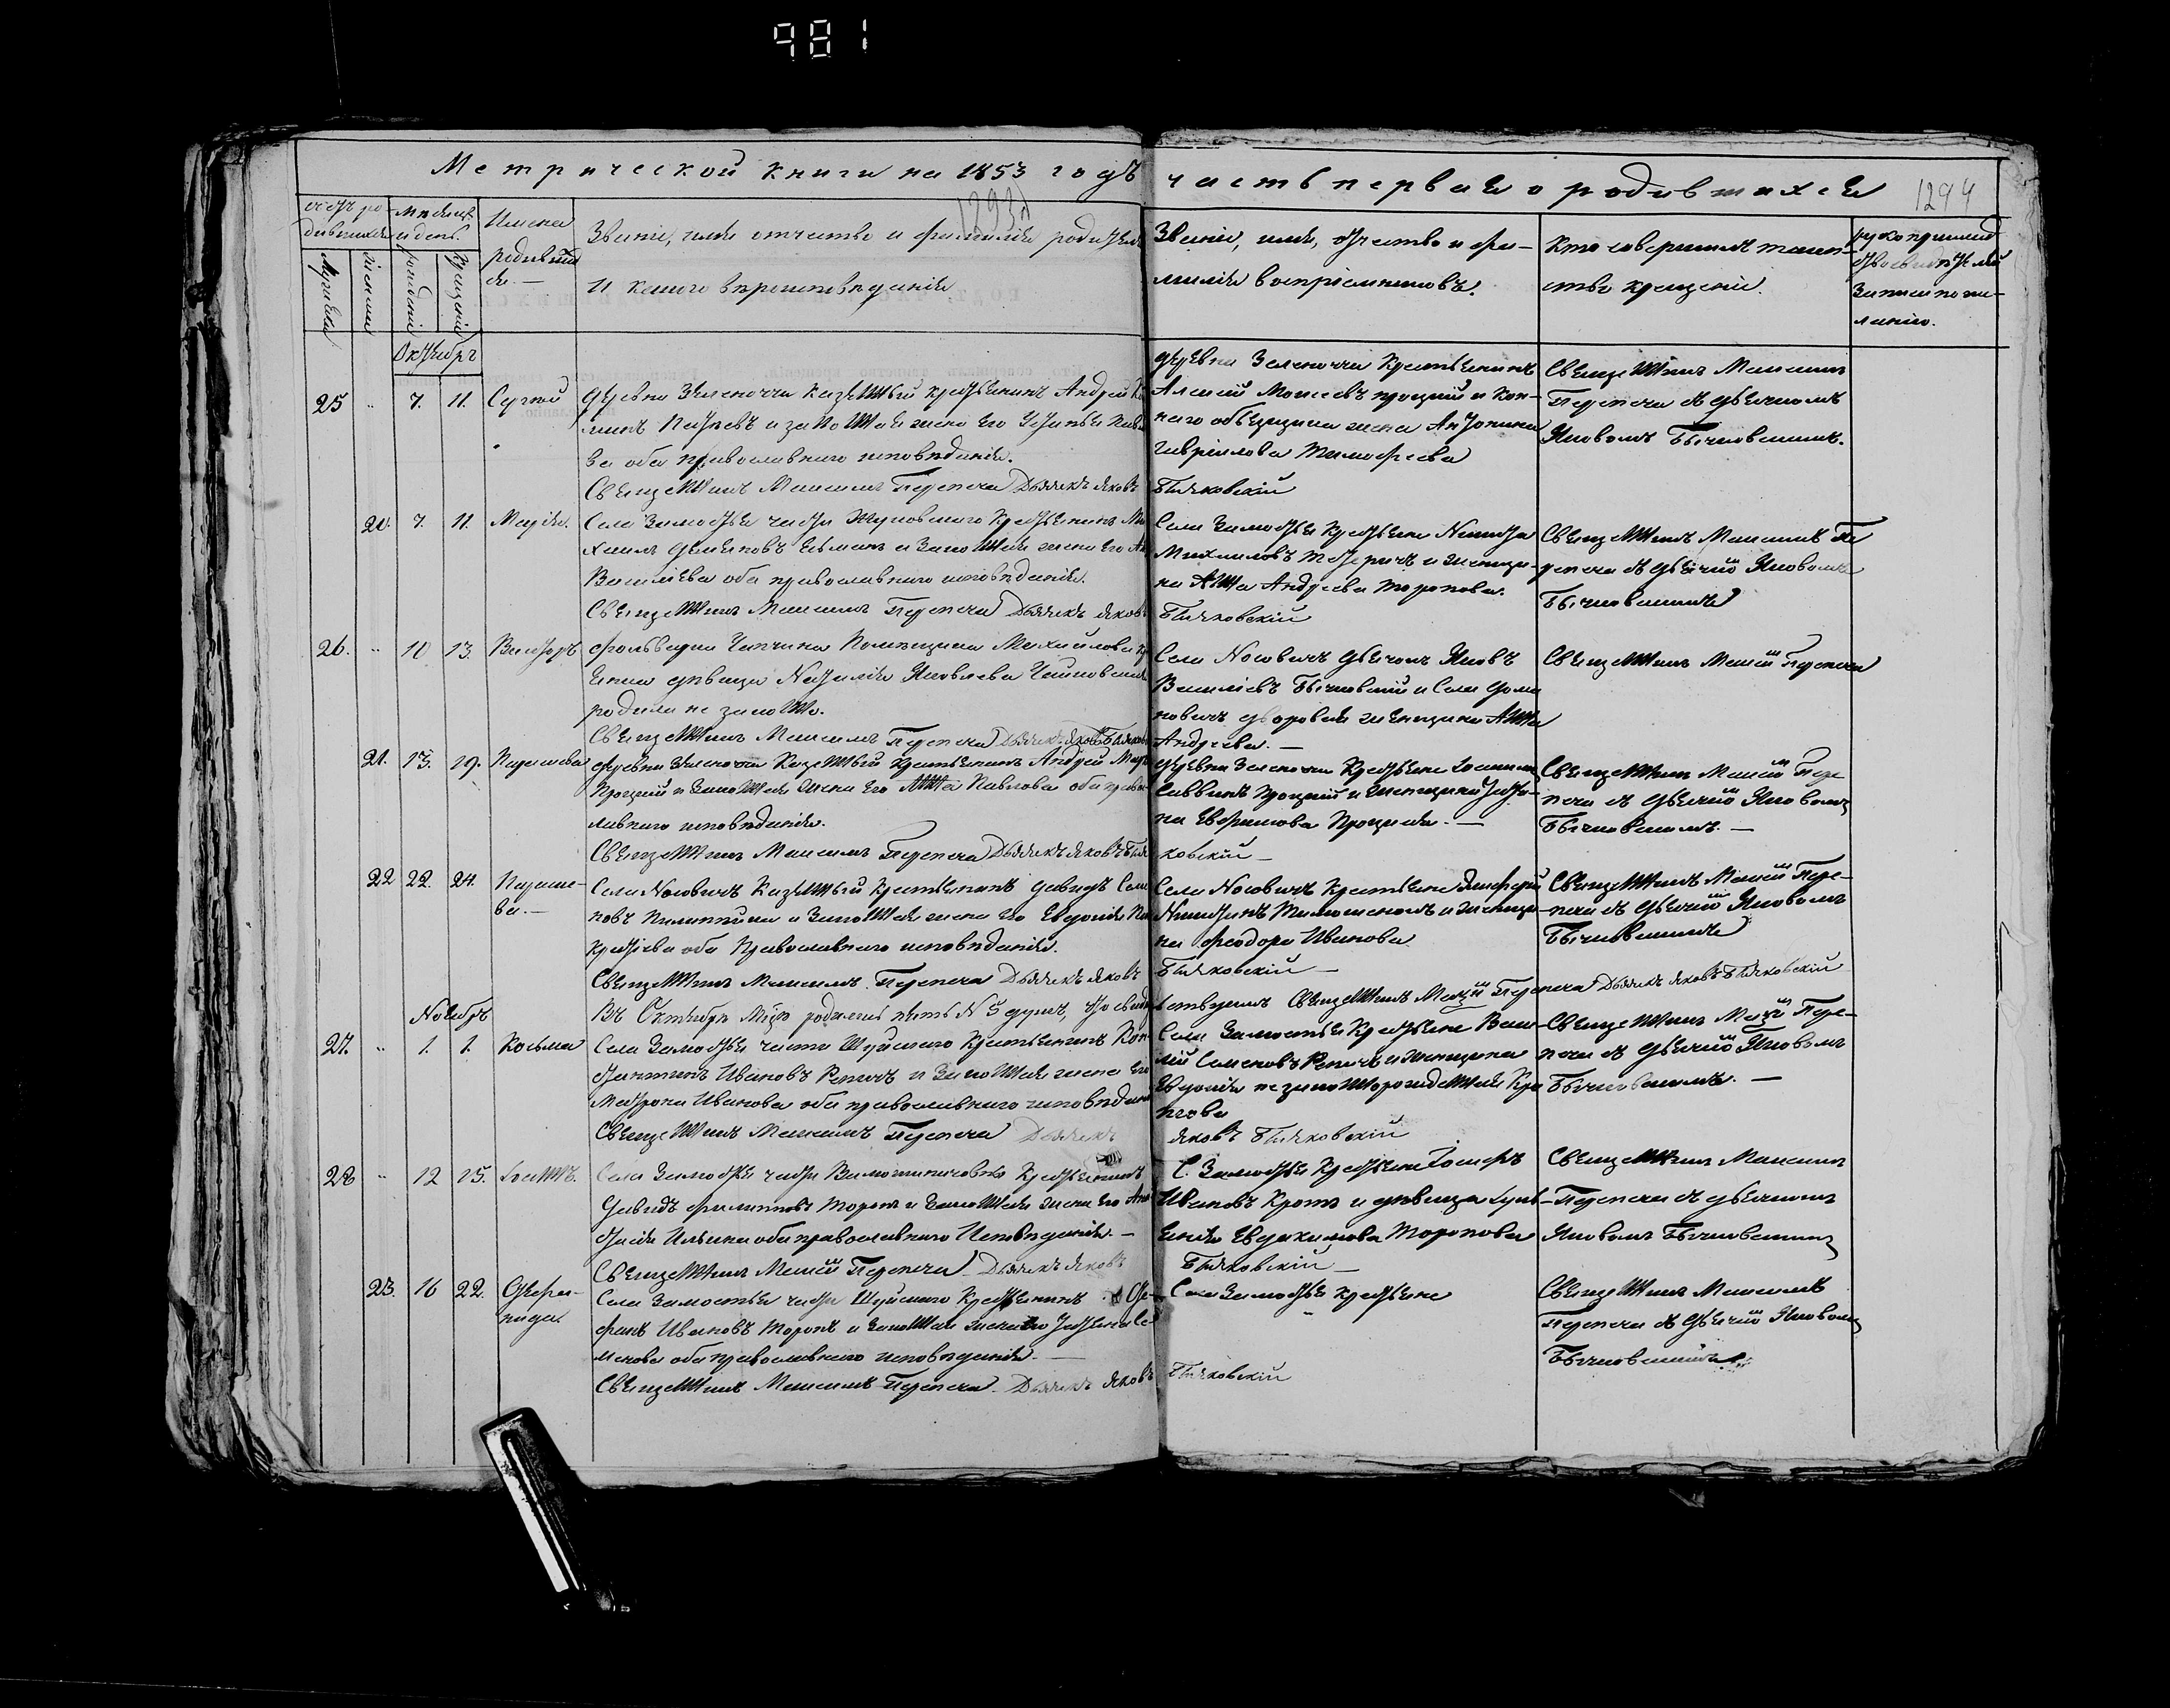 981
Метрической книги на 1853 годъ
часть первая о родившихся
1293
1294
Имена
родивших
ся. —
Званіе, имя отчество и фамилія родителей
и какого вѣроисповѣданія
Званіе, имя, отчество и фа-
милія воспріемниковъ.
Кто совершалъ таин-
ство крещенія.
рукоприклад
записи по же-
ланію.
Октябрь
25 " 7. 11. Сергій
деревни Зеленочи Казенный крестьянинъ Андрей
и законная жена его Устинья
ва оба православнаго исповѣданія.
Священникъ Максимъ Перепеча Дьячекъ Яковъ
деревни Зеленочи Крестьянинъ
Алексій Моисеевъ Процкій и Кон-
наго объѣщика жена Антонина
Гавріилова Тимофеева
Бычковскій
Священникъ Максимъ
Перепеча съ дьячкомъ
Яковомъ Бычковскимъ.
20. 7. 11. Марія.
Села Замостья части Жуковскаго Крестьянинъ Ми
хаилъ и законная жена его
Василіева оба православнаго исповѣданія.
Священникъ Максимъ Перепеча Дьячекъ Яковъ
Села Замостья Крестьяне Никита
Михаиловъ и женщи-
на Анна Андреева Торопова.
Бычковскій
Священникъ Максимъ Пе
репеча съ дьячкомъ Яковомъ
Бычковскимъ
26. " 10 13. Викторъ
фольварка Чапчина Помѣщика Михайлова
дѣвица Наталія Яковлева
родила не законно.
Священникъ Максимъ Перепеча Дьячекъ Яковъ Бычков
Села Носовичъ дьячокъ Яковъ
Василіевъ Бычковскій и Села Дома
новичъ дворовая женщина Анна
Андреева. —
Священникъ Максимъ Перепеча
21. 15. 19. Параскева
деревни Зеленочи Казенный Крестьянинъ Андрей
Процкій и законная жена его Анна Павлова оба право
лавнаго исповѣданія.
Священникъ Максимъ Перепеча Дьячекъ Яковъ Быч
деревни Зеленочи Крестьяне
Саввинъ Процкій и женщина
на Ефимова Процкая. —
ковскій —
Священникъ Максимъ Пере
печа съ дьячкомъ Яковомъ
Бычковскимъ. —
22 22. 24. Параске-
ва. —
Села Носовичъ Казенный Крестьянинъ Давидъ Семе
новъ и законная жена его Евдокія
оба Православнаго исповѣданія.
Священникъ Максимъ Перепеча Дьячекъ Яковъ
Села Носовичъ Крестьяне
Никитинъ и женщи-
на Феодора Иванова
Бычковскій —
Священникъ Максимъ Пере-
печа съ дьячкомъ Яковомъ
Бычковскимъ
Въ Октябрѣ Мцѣ родилось пять № 5 душъ, что свидѣ
тельствуемъ Священникъ Максимъ Перепеча Дьячекъ Яковъ Бычковскій
Ноябрь
27. " 1. 1. Косьма
Села Замостья части Шуйскаго Крестьянинъ Кон-
стантинъ Ивановъ Репичъ и законная жена его
Матрона Иванова оба православнаго исповѣданія
Священникъ Максимъ Перепеча Дьячекъ
Села Замостья Крестьяне Васи-
лій Семеновъ Репичъ и женщина
Евдокія незаконнорожденная
Яковъ Бычковскій
Священникъ Максимъ Пере-
печа съ дьячкомъ Яковомъ
Бычковскимъ. —
28 " 12 15. Іоаннъ.
Села Замостья части Крестьянинъ
Давидъ Филипповъ Торопъ и законная жена его Ана
стасія Ильина оба православнаго Исповѣданія. —
Священникъ Максимъ Перепеча Дьячекъ Яковъ
С. Замостья Крестьяне Іосифъ
Ивановъ Кротъ и дѣвица
Евдокимова Торопова
Бычковскій —
Священникъ Максимъ
Перепеча съ дьячкомъ
Яковомъ Бычковскимъ
23. 16 22. Стефа-
нида.
Села Замостья части Шуйскаго Крестьянинъ Сте-
фанъ Ивановъ Торопъ и законная жена его
оба православнаго исповѣданія. —
Священникъ Максимъ Перепеча Дьячекъ Яковъ
Села Замостья крестьяне
Бычковскій
Священникъ Максимъ
Перепеча съ дьячкомъ Яковомъ
Бычковскимъ